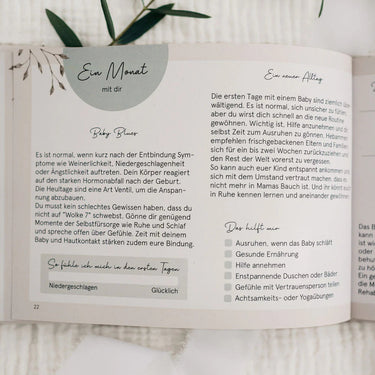 Ein Monat
mit dir
Baby Blues
Es ist normal, wenn kurz nach der Entbindung Symp-
tome wie Weinerlichkeit, Niedergeschlagenheit
oder Ängstlichkeit auftreten. Dein Körper reagiert
auf den starken Hormonabfall nach der Geburt.
Die Heultage sind eine Art Ventil, um die Anspan-
nung abzubauen.
Du musst kein schlechtes Gewissen haben, dass du
nicht auf "Wolke 7" schwebst. Gönne dir genügend
Momente der Selbstfürsorge wie Ruhe und Schlaf
und spreche offen über Gefühle. Zeit mit deinem
Baby und Hautkontakt stärken zudem eure Bindung.
So fühle ich mich in den ersten Tagen
Niedergeschlagen Glücklich
22
Ein neuer Alltag
Die ersten Tage mit einem Baby sind ziemlich über-
wältigend. Es ist normal, sich unsicher zu fühlen,
aber du wirst dich schnell an die neue Routine
gewöhnen. Wichtig ist, Hilfe anzunehmen und dir
selbst Zeit zum Ausruhen zu gönnen. Hebammen
empfehlen frischgebackenen Eltern und Familien,
sich für ein bis zwei Wochen zurückzuziehen und
den Rest der Welt vorerst zu vergessen.
So kann auch euer Kind entspannt ankommen und
sich mit dem Umstand vertraut machen, dass es
nicht mehr in Mamas Bauch ist. Und ihr könnt euch
in Ruhe kennen lernen und aneinander gewöhnen.
Das hilft mir
Ausruhen, wenn das Baby schläft
Gesunde Ernährung
Hilfe annehmen
Enstpannende Duschen oder Bäder
Gefühle mit Vertrauensperson teilen
Achtsamkeits- oder Yogaübungen